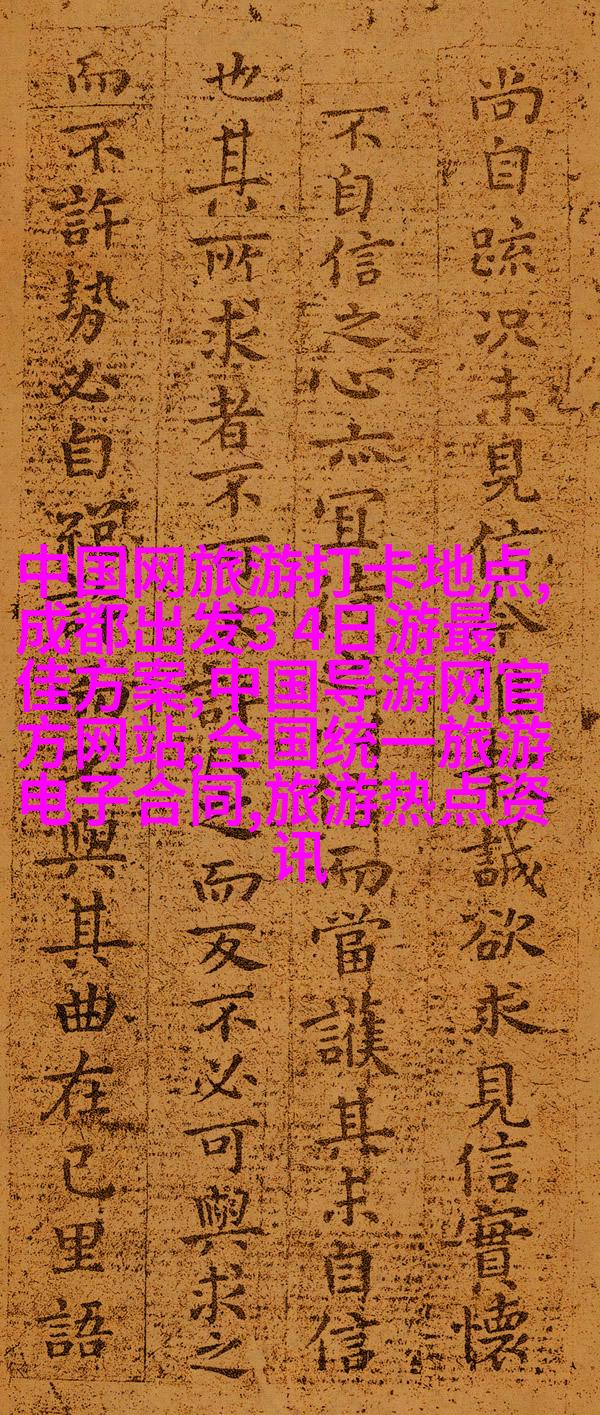 尚自疏況未見信今
誠欲求見信實懷
不自信之心亦宜
而當護其未自信
也其所求者不可
而反不必可與求之
而不許勢必自絕
與其曲在己里語
中国网旅游打卡地点,
成都出发3 4日游最
佳方案,中国导游网官
方网站,全国统一旅游
电子合同,旅游热点资
讯